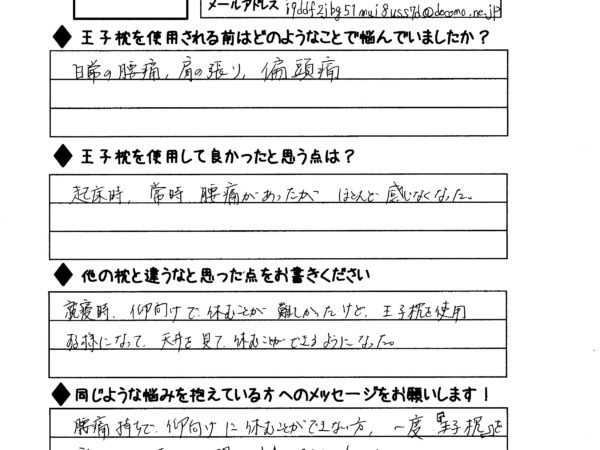 メールアドレス i9ddf2jbg51mui8uss9d@docomo.ne.jp
◆王子枕を使用される前はどのようなことで悩んでいましたか？
日常の腰痛，肩の張り，偏頭痛
◆王子枕を使用して良かったと思う点は？
起床時，常時 腰痛があったが ほとんど感じなくなった。
◆他の枕と違うなと思った点をお書きください
就寝時，仰向けで休むことが難しかったけど，王子枕を使用
する様になって，天井を見て休むことができるようになった。
◆同じような悩みを抱えている方へのメッセージをお願いします！
腰痛持ちで，仰向けに休むことができない方，一度「王子枕」を